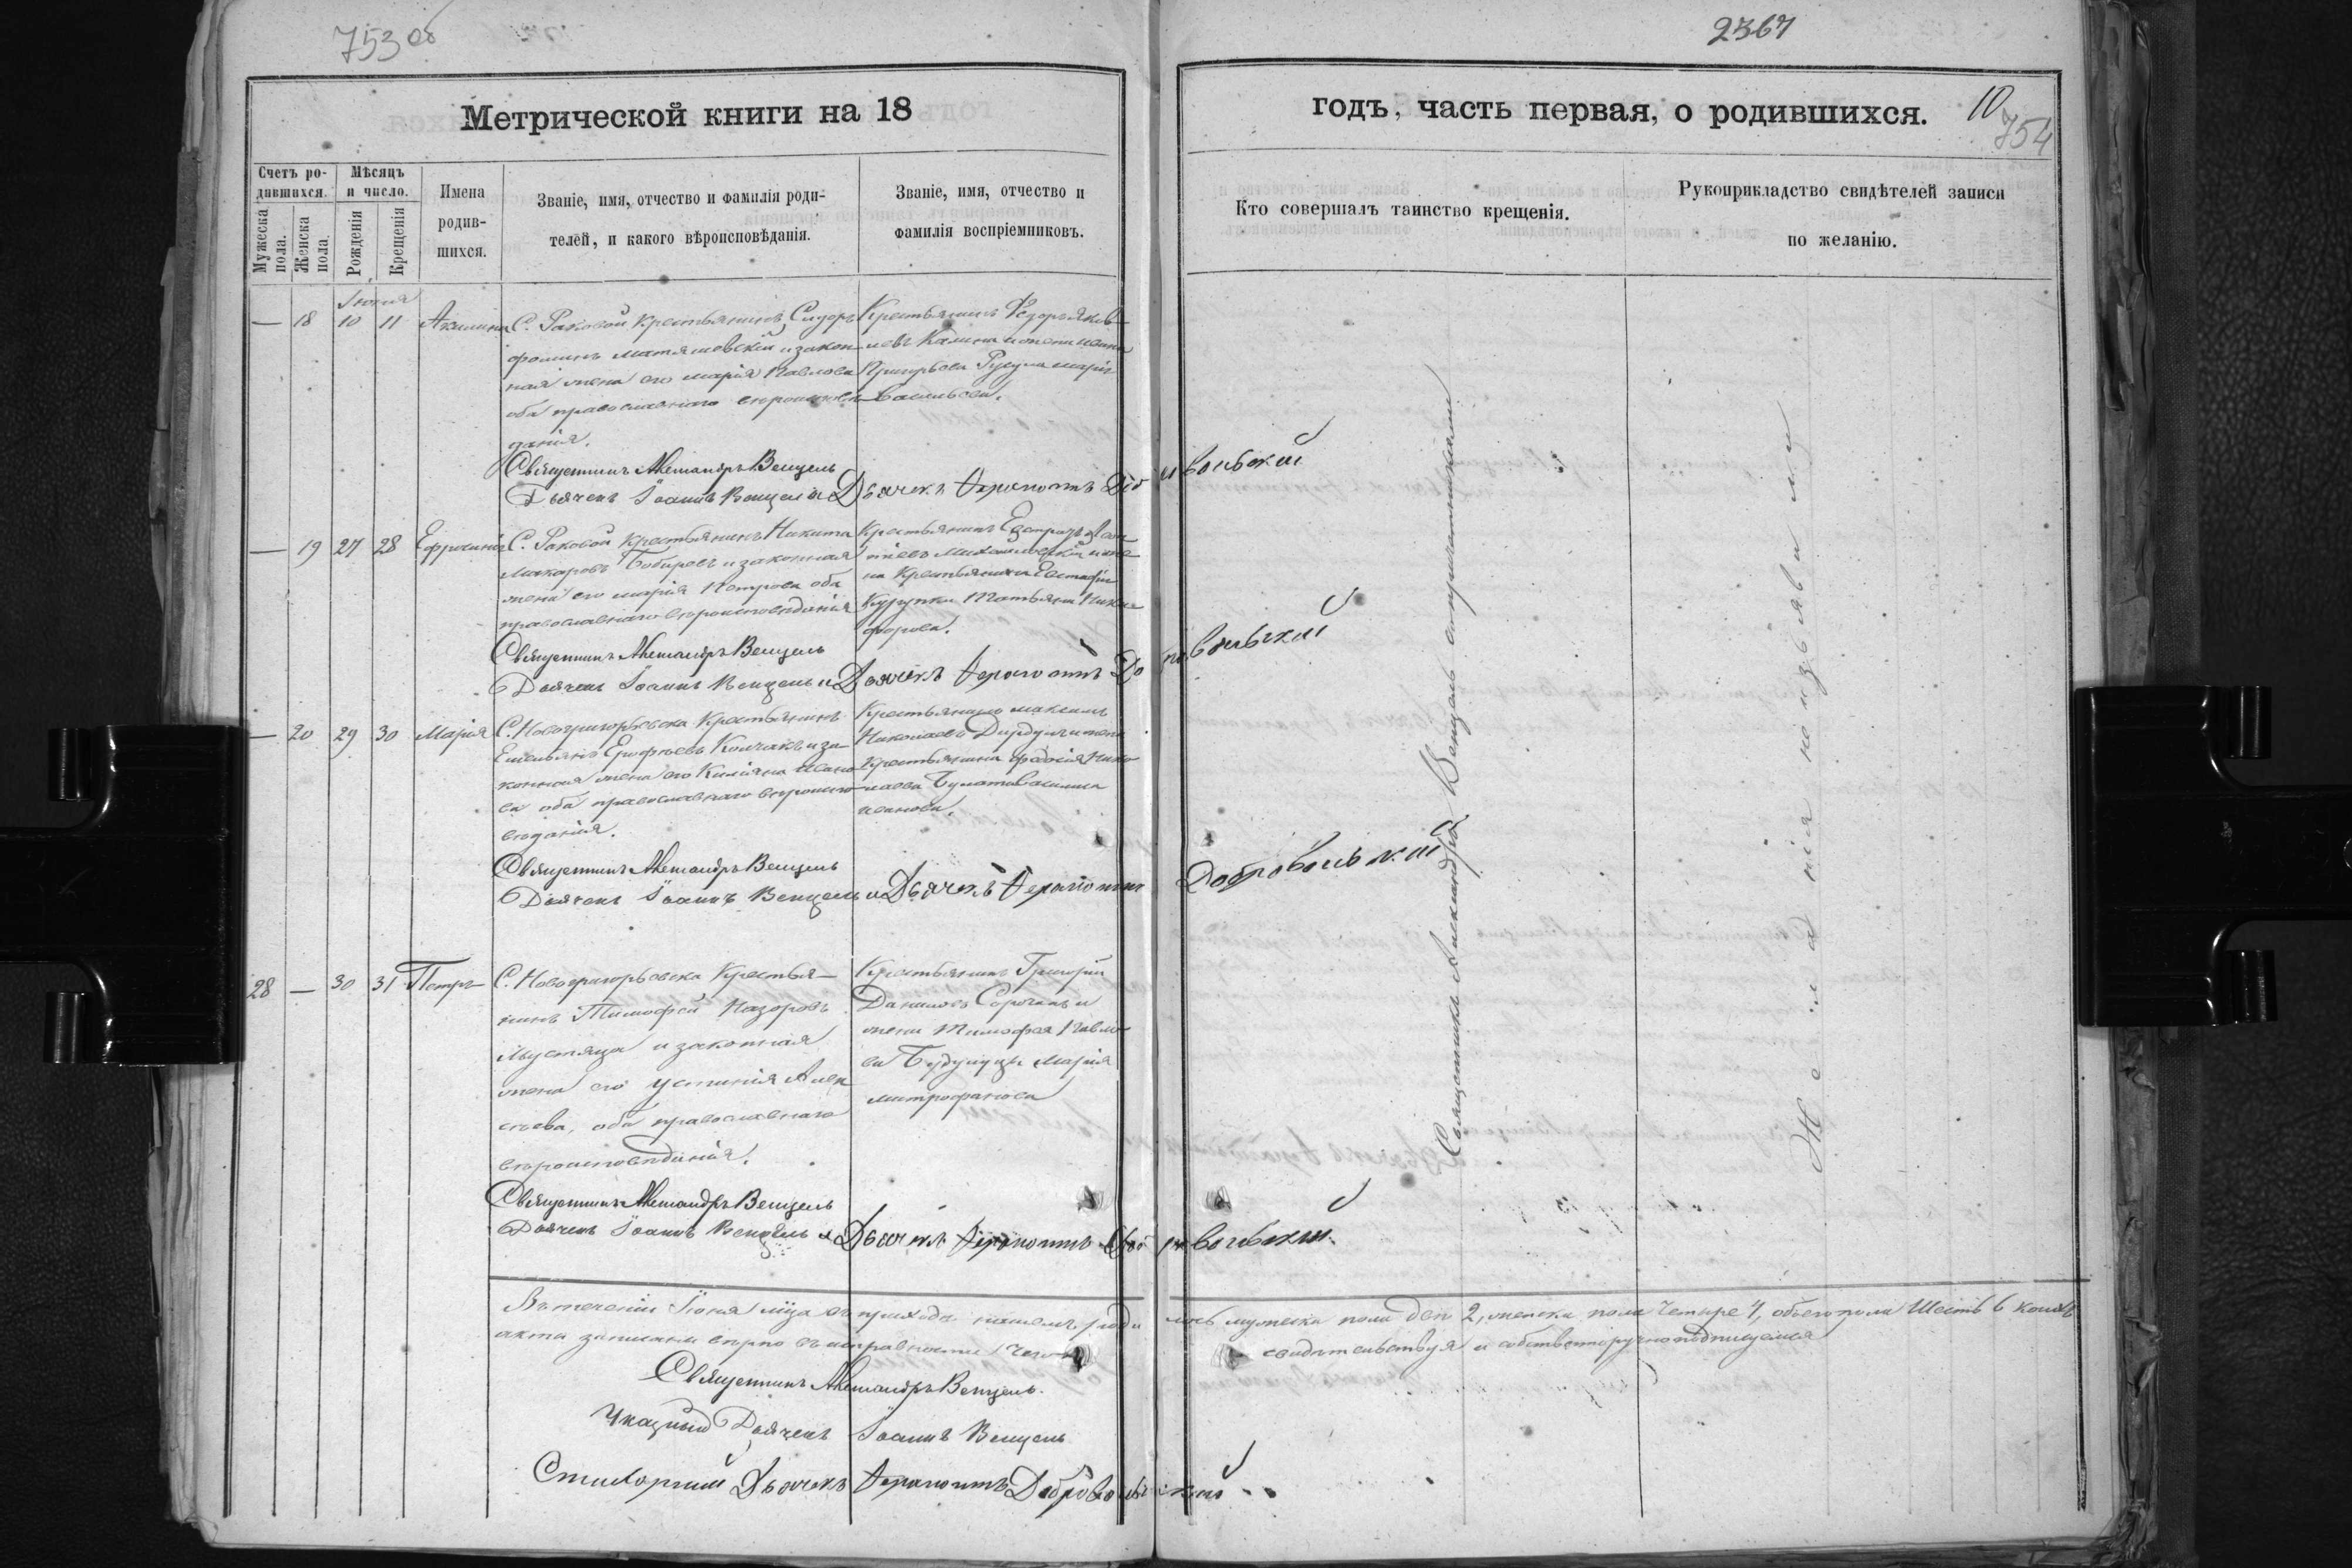 753 об
2367
Метрической книги на 18
годъ, часть первая, о родившихся.
10
754
Счетъ ро-
дившихся.
Мужеска пола.
Женска пола.
Мѣсяцъ
и число.
Рожденія
Крещенія
Имена
родив-
шихся.
Званіе, имя, отчество и фамилія роди-
телей, и какого вѣроисповѣданія.
Званіе, имя, отчество и
фамилія воспріемниковъ.
Кто совершалъ таинство крещенія.
Рукоприкладство свидѣтелей записи
по желанію.
Іюня
— 18 10 11 Акилина
С. Раковой Крестьянинъ Сидоръ
Фоминъ и закон-
ная жена его Марія Павлова
оба православнаго вѣроисповѣ-
данія.
Крестьянинъ Федоръ Яков-
левъ Калина и
Григорьева Марія
Васильева.
Священникъ Александръ Венцель
Дьячекъ Іоаннъ Венцель и Дьячекъ Ферапонтъ Добровольскій
— 19 27 28 Ефросинія
С. Раковой Крестьянинъ Никита
Макаровъ Бобыревъ и законная
жена его Марія Петрова оба
православнаго вѣроисповѣданія
Крестьянинъ
Михайловскій и же-
на Крестьянина Евстафія
Татьяна Ники-
форова.
Священникъ Александръ Венцель
Дьячекъ Іоаннъ Венцель и Дьячекъ Ферапонтъ Добровольскій
— 20 29 30 Марія
С. Новогригорьевка Крестьянинъ
Емельянъ Ерофѣевъ Колчакъ и за-
конная жена его Киліяна Ивано-
ва оба православнаго вѣроиспо-
вѣданія.
Крестьянинъ Максимъ
Николаевъ и жена
Крестьянина Нико-
лаева Василиса
Иванова.
Священникъ Александръ Венцель
Дьячекъ Іоаннъ Венцель и Дьячекъ Ферапонтъ Добровольскій
28 — 30 31 Петръ
С. Новогригорьевка Крестья-
нинъ Тимофей Назаровъ
и законная
жена его Устинія Алек-
сѣева, оба православнаго
вѣроисповѣданія.
Крестьянинъ Григорій
Даниловъ Сорочанъ и
жена Тимофея Павло-
ва Марія
Митрофанова
Священникъ Александръ Венцель
Дьячекъ Іоаннъ Венцель и Дьячекъ Ферапонтъ Добровольскій
Священникъ Александръ Венцель съ причетниками
Желанія не изъявили
Въ теченіи Іюня мца въ приходѣ нашемъ родилось мужеска пола два 2, женска пола четыре 4, обоего пола шесть 6 коихъ
акты записаны вѣрно въ исправности чего свидѣтельствуя и собственноручно подписуемся
Священникъ Александръ Венцель.
Указный Дьячекъ Іоаннъ Венцель
Стихарный Дьячекъ Ферапонтъ Добровольскій